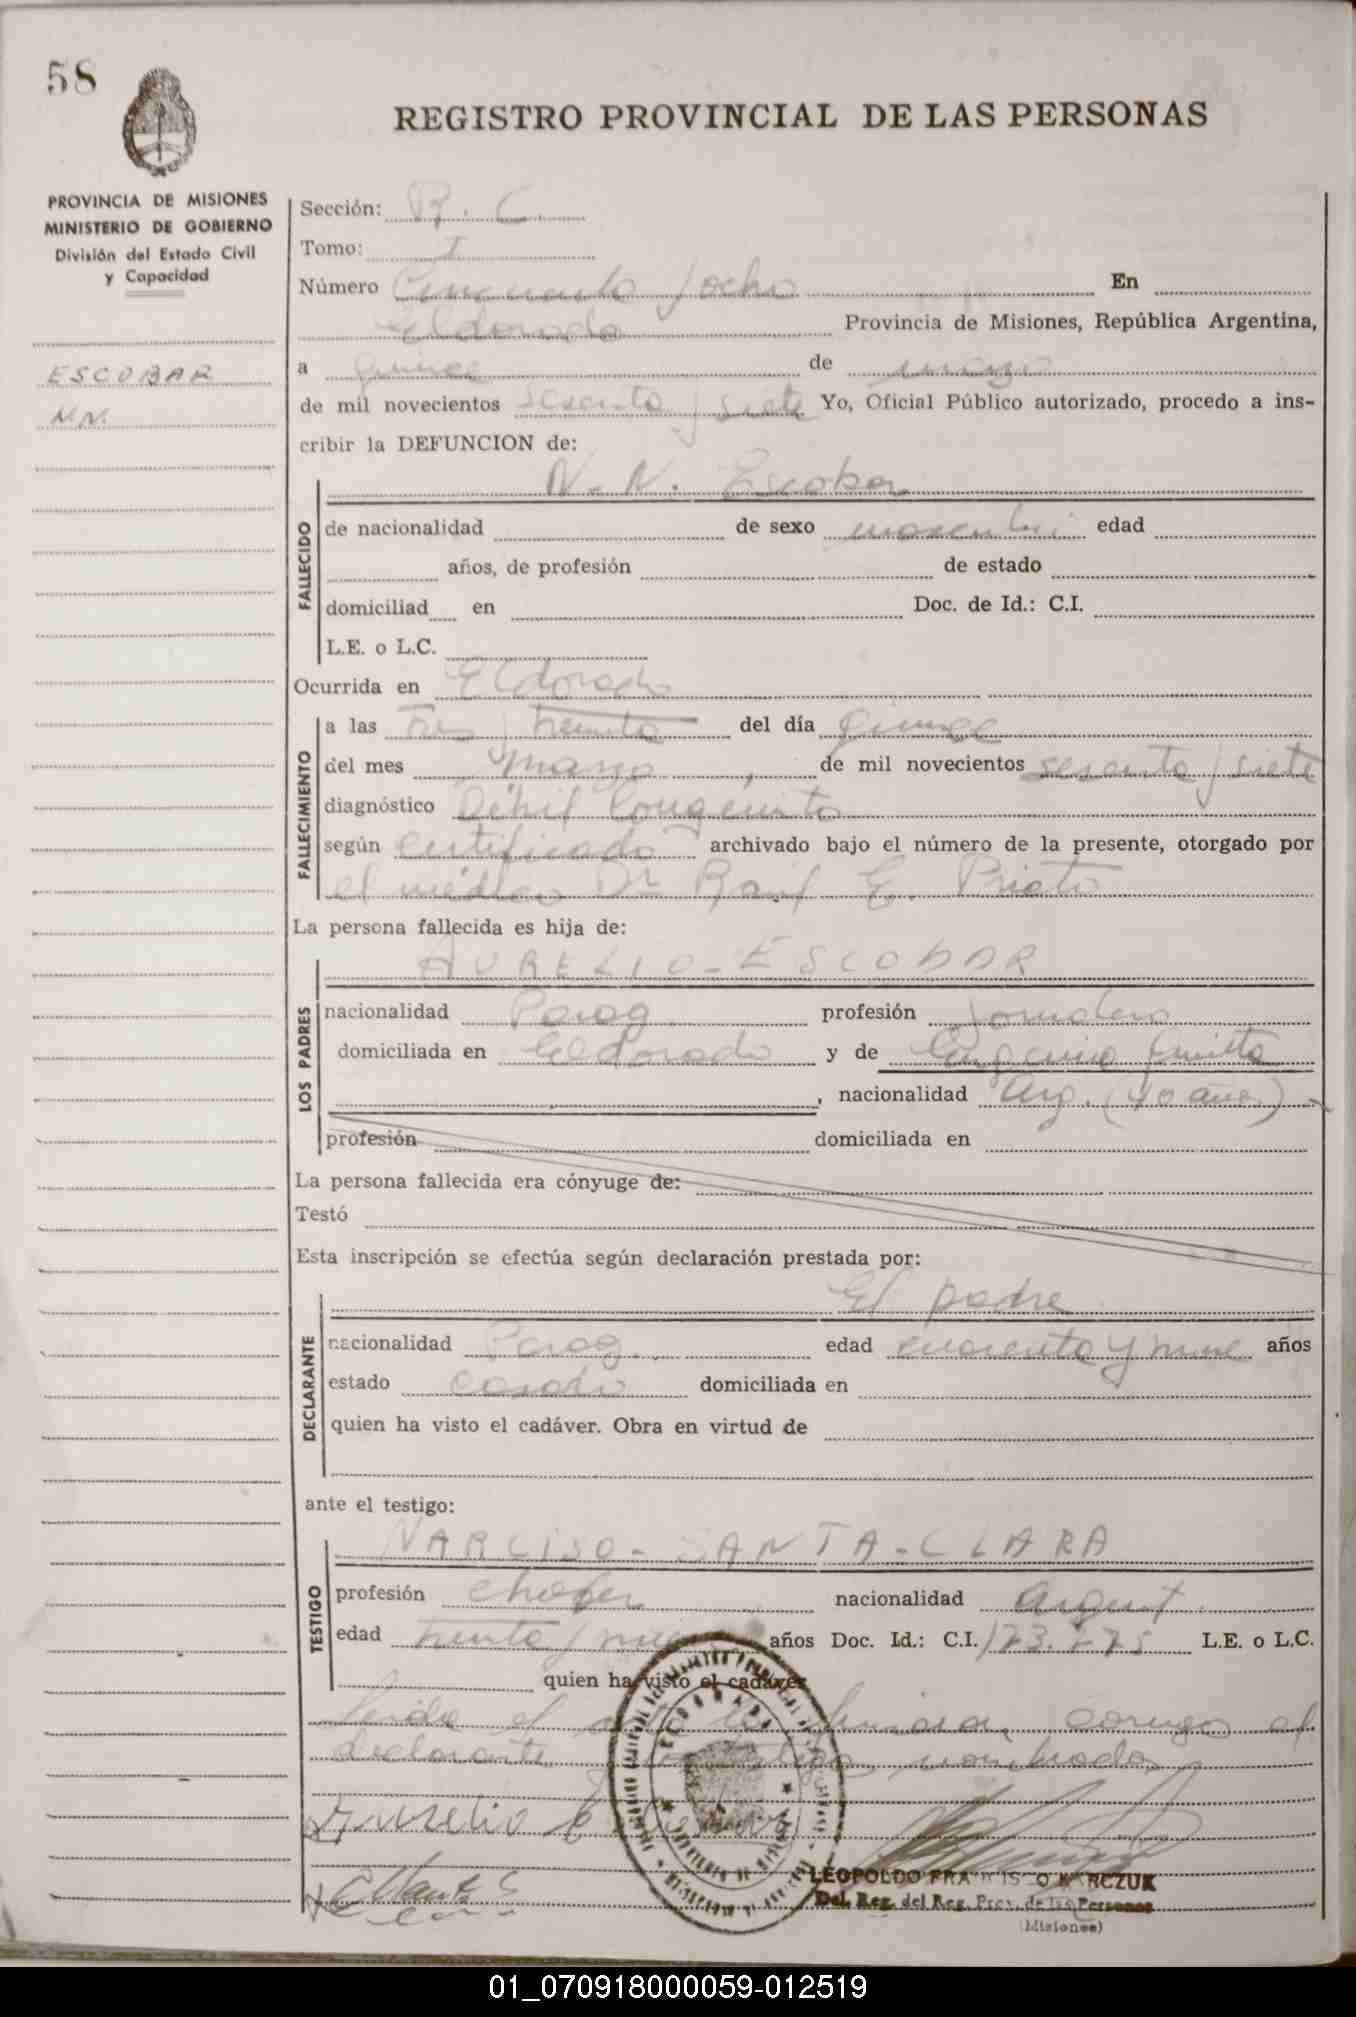 58
REGISTRO PROVINCIAL DE LAS PERSONAS
PROVINCIA DE MISIONES
MINISTERIO DE GOBIERNO
División del Estado Civil
y Capacidad
ESCOBAR
N.N.
Sección: B. C.
Tomo: I
Número Cincuenta y ocho En
Eldorado Provincia de Misiones, República Argentina,
a quince de marzo
de mil novecientos sesenta y siete Yo, Oficial Público autorizado, procedo a ins-
cribir la DEFUNCION de:
N. N. Escobar
FALLECIDO
de nacionalidad de sexo masculi edad
años, de profesión de estado
domiciliad en Doc. de Id.: C.I.
L.E. o L.C.
Ocurrida en Eldorado
FALLECIMIENTO
a las tres y treinta del día quince
del mes marzo, de mil novecientos sesenta y siete
diagnóstico Débil Congénito
según certificado archivado bajo el número de la presente, otorgado por
el médico Dr Raul E. Prieto
La persona fallecida es hija de:
AURELIO - ESCOBAR
LOS PADRES
nacionalidad Parag. profesión Jornalero
domiciliada en Eldorado y de
, nacionalidad Arg. (40 años)
profesión domiciliada en
La persona fallecida era cónyuge de:
Testó
Esta inscripción se efectúa según declaración prestada por:
El padre
DECLARANTE
nacionalidad Parag. edad cuarenta y nueve años
estado casado domiciliada en
quien ha visto el cadáver. Obra en virtud de
ante el testigo:
NARCISO - SANTA - CLARA
TESTIGO
profesión chofer nacionalidad Argent.
edad treinta y años Doc. Id.: C.I. L.E. o L.C.
quien ha visto el cadáver
Leída el conmigo el
declarante nombrado
Aurelio
ELDORADO
LEOPOLDO FRANCISCO MARCZUK
Del. Reg. del Reg. Prov. de las Personas
(Misiones)
01_070918000059-012519